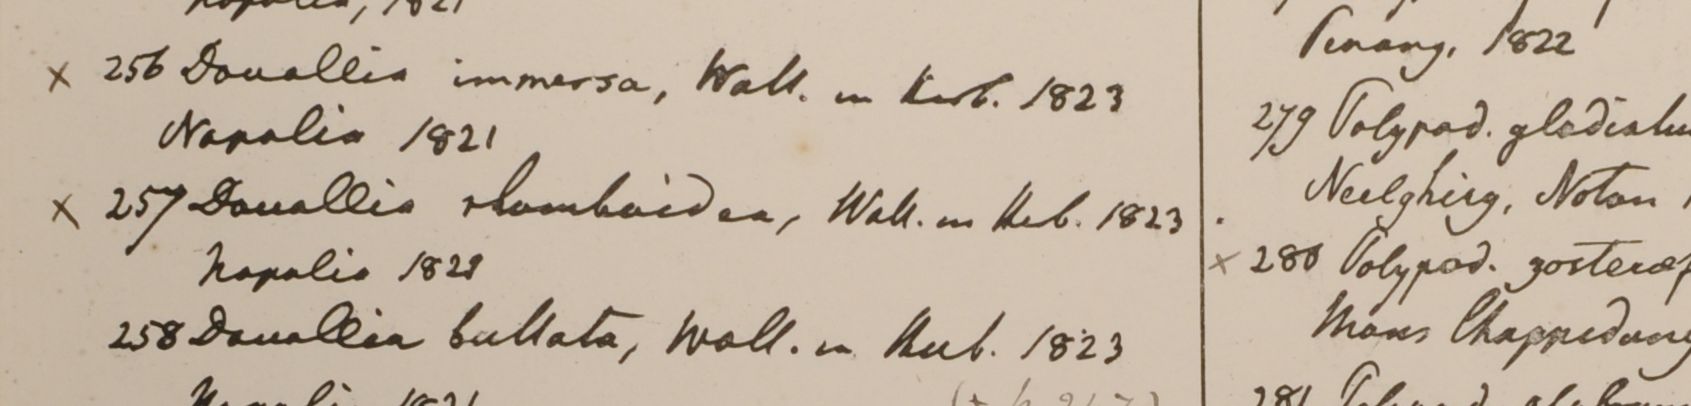 Napalia, 1821
× 256 Davallia immersa, Wall. in Herb. 1823
Napalia 1821
× 257 Davallia rhomboidea, Wall. in Herb. 1823
Napalia 1821
258 Davallia bullata, Wall. in Herb. 1823
Napalia 1821
Penang, 1822
279 Polypod. gladiatu
Neelghiry, Noton
× 280 Polypod. zosteræf
Mons Chappedong
281 Polypod.